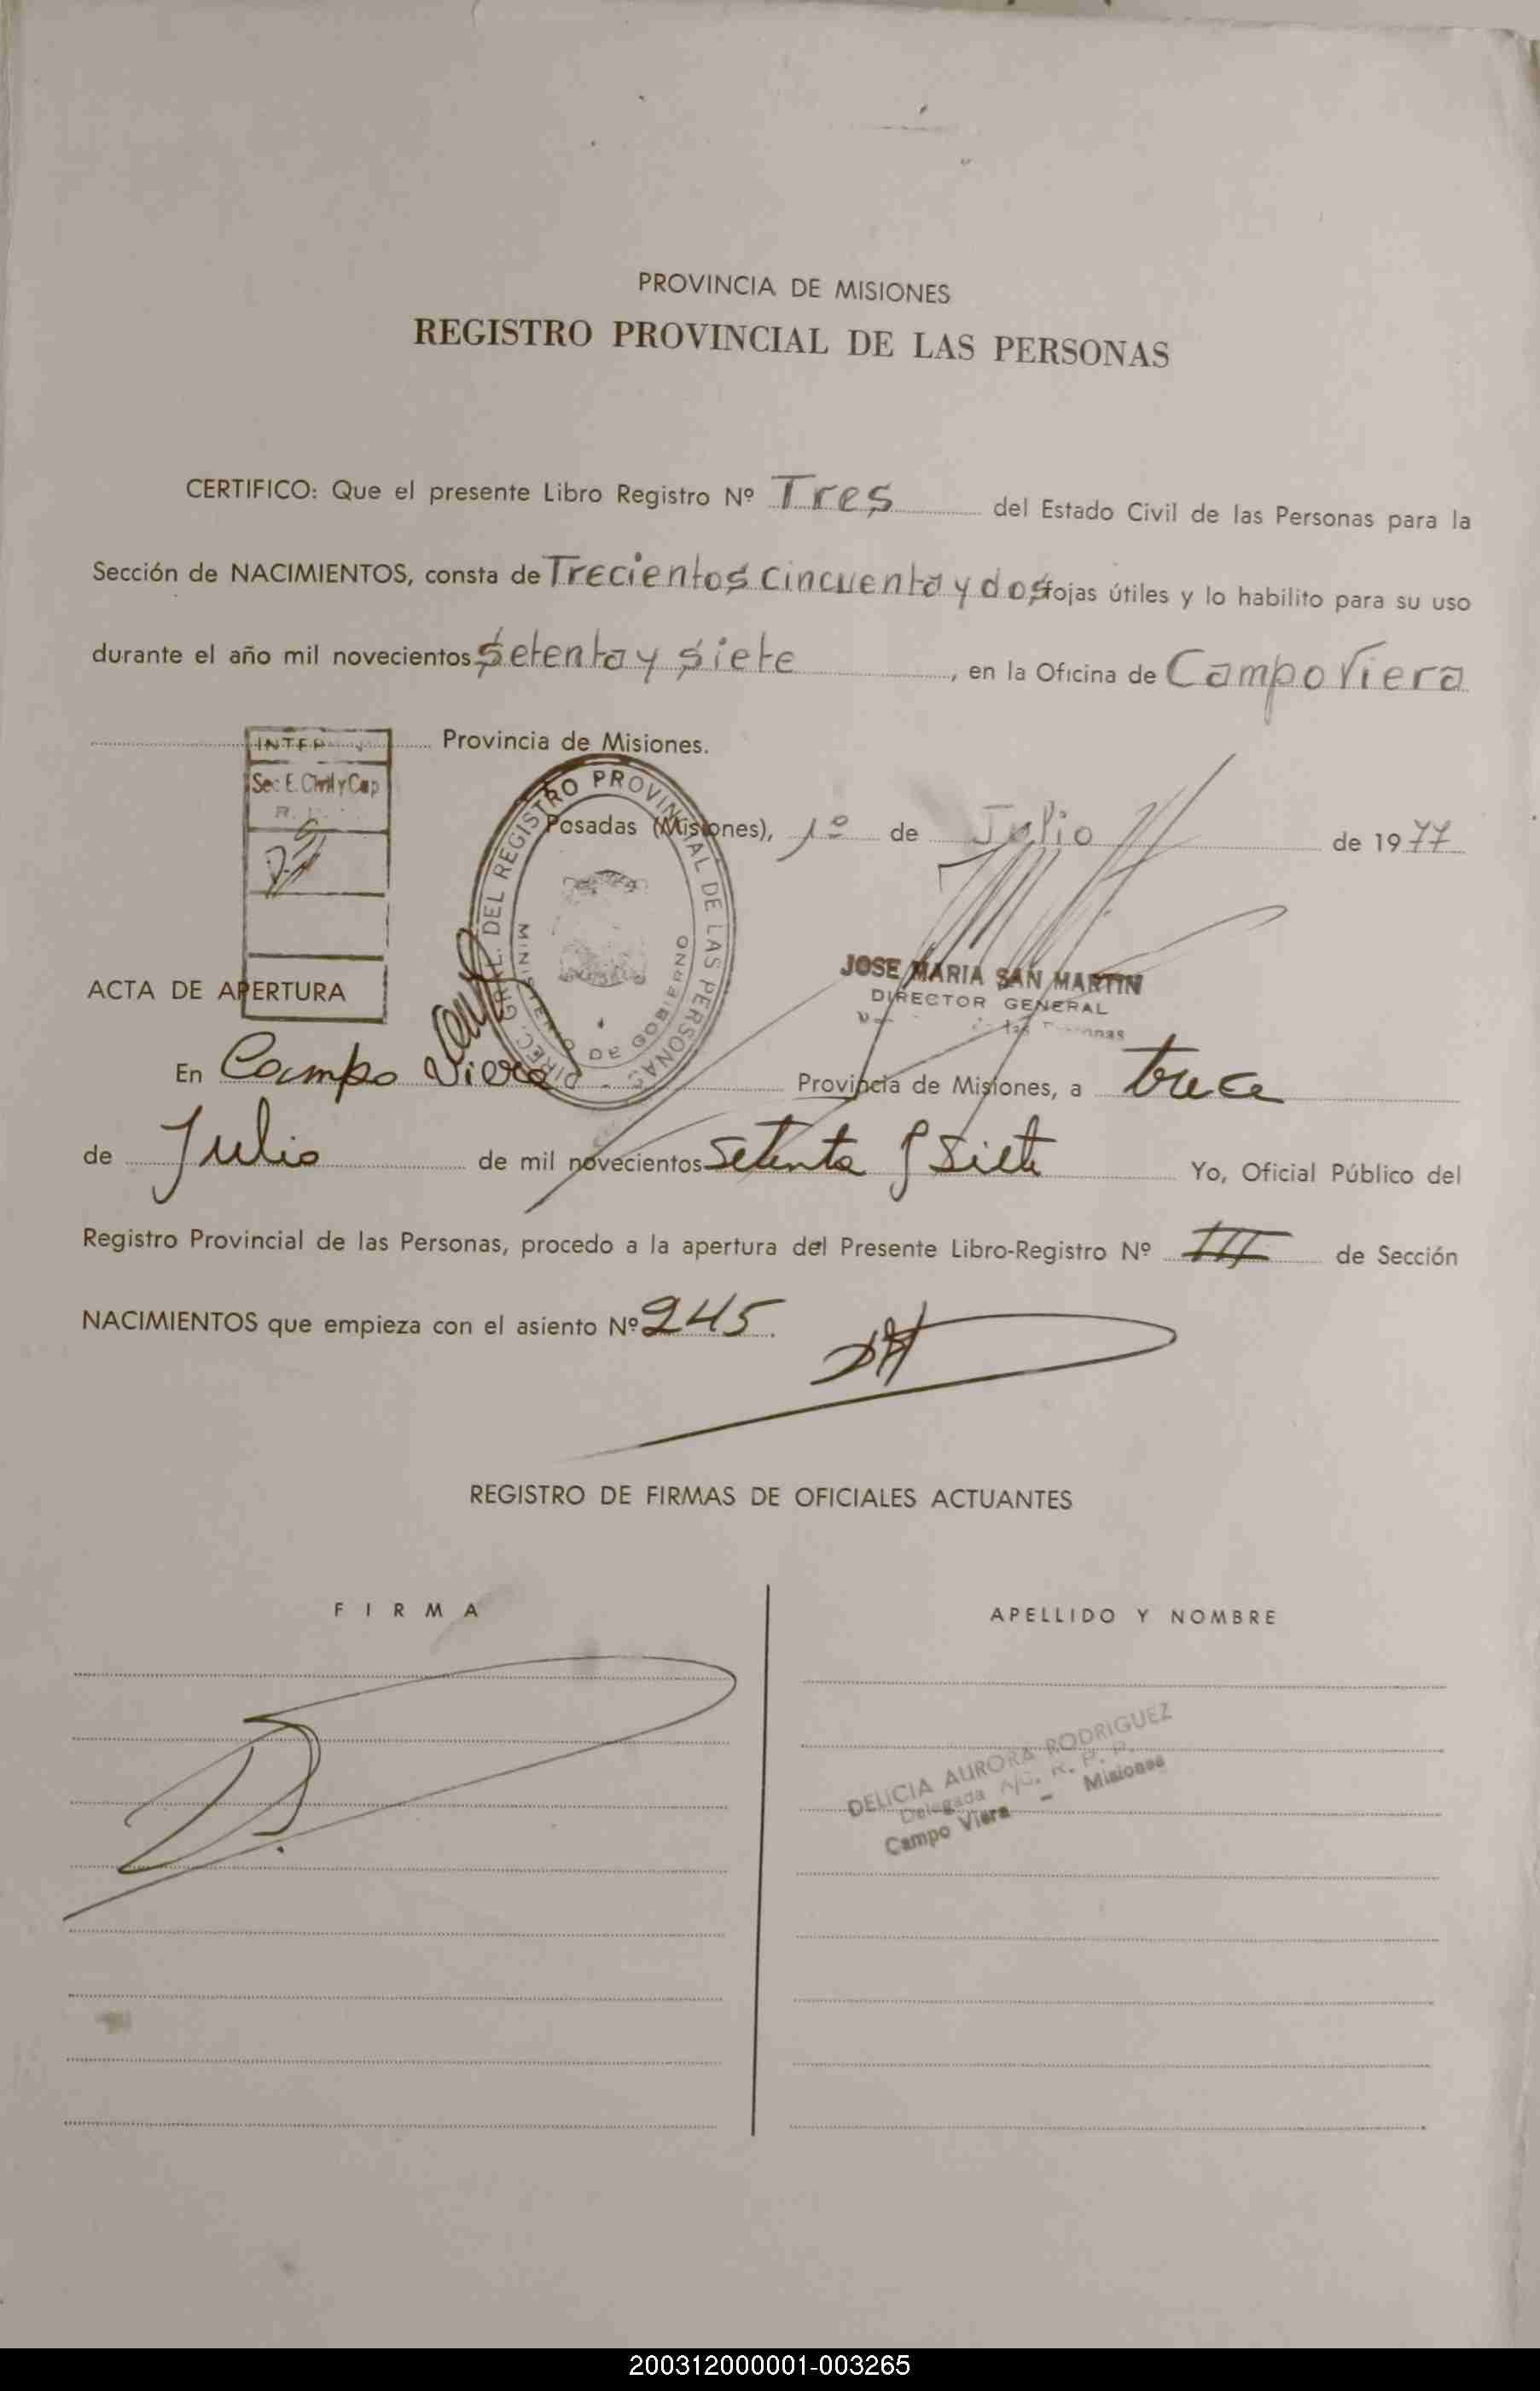 PROVINCIA DE MISIONES
REGISTRO PROVINCIAL DE LAS PERSONAS
CERTIFICO: Que el presente Libro Registro Nº Tres del Estado Civil de las Personas para la
Sección de NACIMIENTOS, consta de Trecientos cincuenta y dos fojas útiles y lo habilito para su uso
durante el año mil novecientos setenta y siete, en la Oficina de Campo Viera
Provincia de Misiones.
Sec E. Civil y Cap
DIREC. GRAL. DEL REGISTRO PROVINCIAL DE LAS PERSONAS
MINISTERIO DE GOBIERNO
Posadas (Misiones), 1º de Julio de 1977
JOSE MARIA SAN MARTIN
DIRECTOR GENERAL
ACTA DE APERTURA
En Campo Viera Provincia de Misiones, a trece
de Julio de mil novecientos setenta y siete Yo, Oficial Público del
Registro Provincial de las Personas, procedo a la apertura del Presente Libro-Registro Nº III de Sección
NACIMIENTOS que empieza con el asiento Nº 245.
REGISTRO DE FIRMAS DE OFICIALES ACTUANTES
FIRMA
APELLIDO Y NOMBRE
DELICIA AURORA RODRIGUEZ
Delegada R. P. P.
Campo Viera - Misiones
200312000001-003265